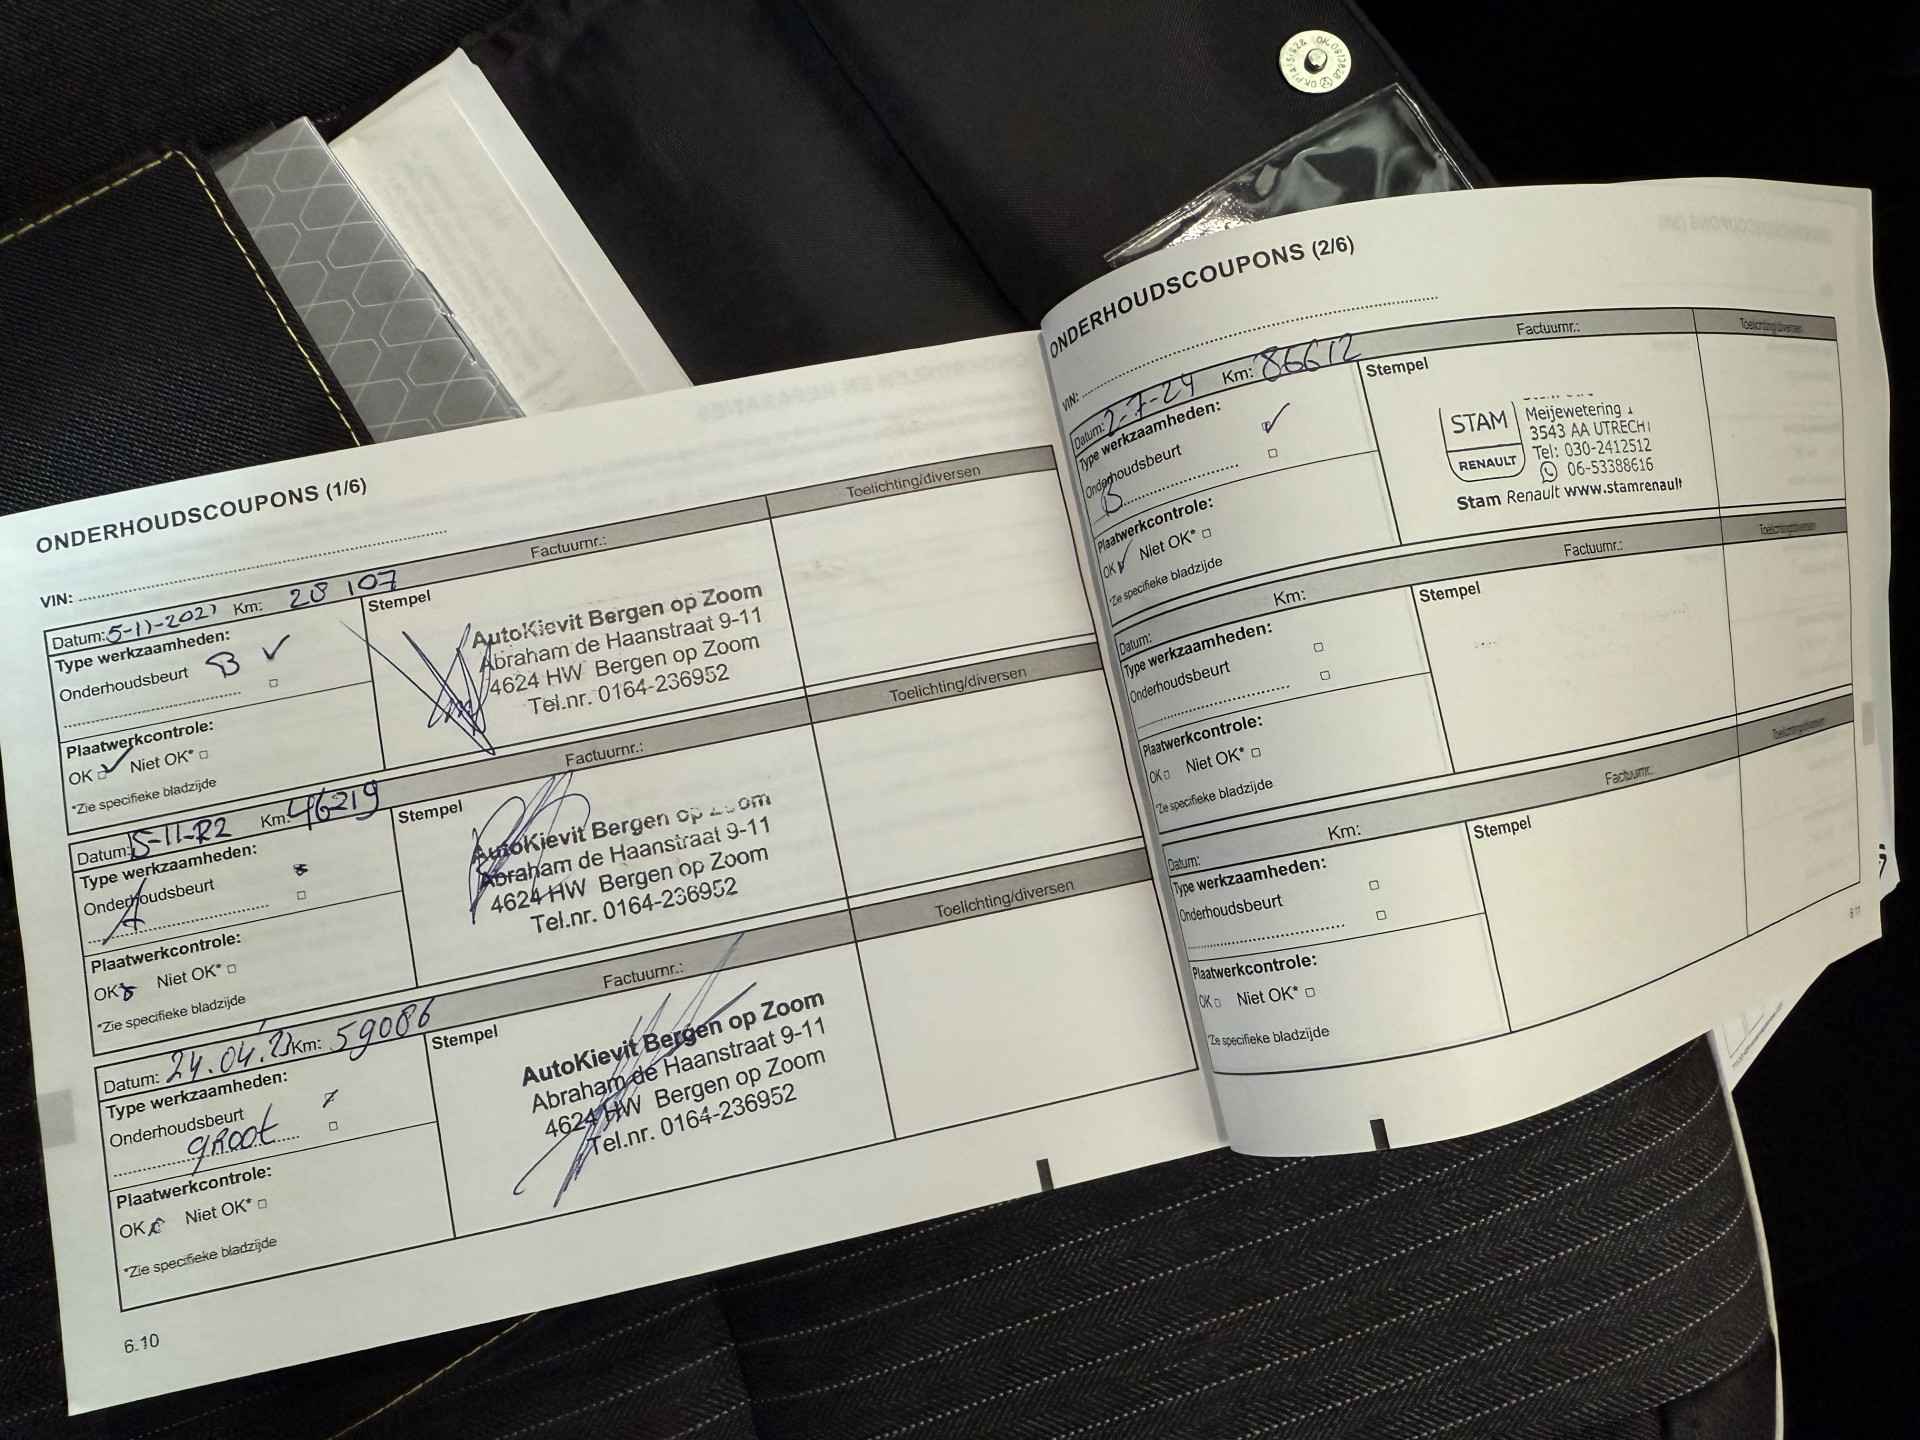 ONDERHOUDSCOUPONS (1/6)
VIN:
Datum: 5-11-2021 Km: 28 107 Factuurnr.: Toelichting/diversen
Type werkzaamheden:
Onderhoudsbeurt B ✓
Plaatwerkcontrole:
OK ✓ Niet OK* □
*Zie specifieke bladzijde
Stempel
AutoKievit Bergen op Zoom
Abraham de Haanstraat 9-11
4624 HW Bergen op Zoom
Tel.nr. 0164-236952
Datum: 15-11-22 Km: 46219 Factuurnr.: Toelichting/diversen
Type werkzaamheden:
Onderhoudsbeurt
A
Plaatwerkcontrole:
OK Niet OK* □
*Zie specifieke bladzijde
Stempel
AutoKievit Bergen op Zoom
Abraham de Haanstraat 9-11
4624 HW Bergen op Zoom
Tel.nr. 0164-236952
Datum: 24.04. Km: 59086 Factuurnr.: Toelichting/diversen
Type werkzaamheden:
Onderhoudsbeurt
groot
Plaatwerkcontrole:
OK Niet OK* □
*Zie specifieke bladzijde
Stempel
AutoKievit Bergen op Zoom
Abraham de Haanstraat 9-11
4624 HW Bergen op Zoom
Tel.nr. 0164-236952
6.10
ONDERHOUDSCOUPONS (2/6)
VIN:
Datum: 2-7-24 Km: 86612 Factuurnr.: Toelichting/diversen
Type werkzaamheden:
Onderhoudsbeurt ✓
B
Plaatwerkcontrole:
OK ✓ Niet OK* □
*Zie specifieke bladzijde
Stempel
STAM
RENAULT
Meijewetering
3543 AA UTRECH
Tel: 030-2412512
06-53388616
Stam Renault www.stamrenault
Datum: Km: Factuurnr.: Toelichting/diversen
Type werkzaamheden:
Onderhoudsbeurt □
Plaatwerkcontrole:
OK □ Niet OK* □
*Zie specifieke bladzijde
Stempel
Datum: Km: Factuurnr.: Toelichting/diversen
Type werkzaamheden:
Onderhoudsbeurt □
Plaatwerkcontrole:
OK □ Niet OK* □
*Zie specifieke bladzijde
Stempel
6.11